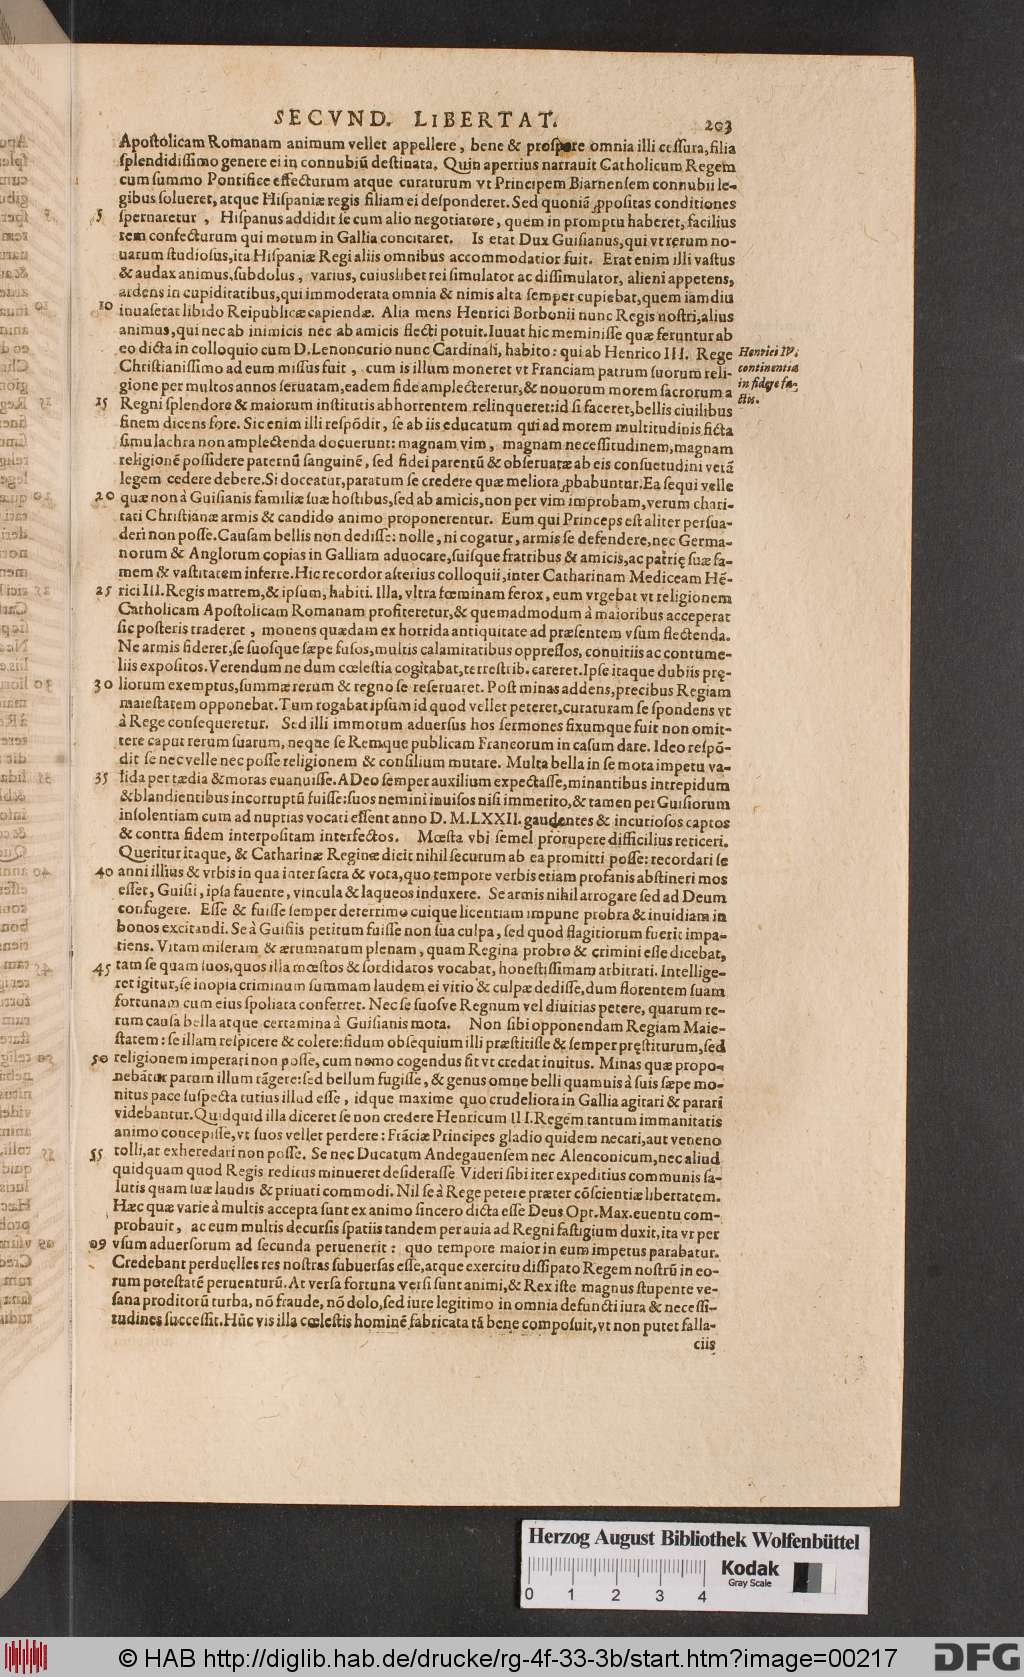 SECVND. LIBERTAT. 203
Apostolicam Romanam animum vellet appellere, bene & prospere omnia illi cessura, filia
splendidissimo genere ei in connubiū destinata. Quin apertius narrauit Catholicum Regem
cum summo Pontifice effecturum atque curaturum vt Principem Biarnensem connubii le-
gibus solueret, atque Hispaniæ regis filiam ei desponderet. Sed quoniā ꝓpositas conditiones
5 spernaretur, Hispanus addidit se cum alio negotiatore, quem in promptu haberet, facilius
rem confecturum qui motum in Gallia concitaret. Is erat Dux Guisianus, qui vt rerum no-
uarum studiosus, ita Hispaniæ Regi aliis omnibus accommodatior fuit. Erat enim illi vastus
& audax animus, subdolus, varius, cuiuslibet rei simulator ac dissimulator, alieni appetens,
ardens in cupiditatibus, qui immoderata omnia & nimis alta semper cupiebat, quem iamdiu
10 inuaserat libido Reipublicæ capiendæ. Alia mens Henrici Borbonii nunc Regis nostri, alius
animus, qui nec ab inimicis nec ab amicis flecti potuit. Iuuat hic meminisse quæ feruntur ab
eo dicta in colloquio cum D. Lenoncurio nunc Cardinali, habito: qui ab Henrico III. Rege
Henrici IV.
Christianissimo ad eum missus fuit, cum is illum moneret vt Franciam patrum suorum reli-
continentia
gione per multos annos seruatam, eadem fide amplecteretur, & nouorum morem sacrorum a
in fidere fa-
15 Regni splendore & maiorum institutis abhorrentem relinqueret: id si faceret, bellis ciuilibus
ctis.
finem dicens fore. Sic enim illi respōdit, se ab iis educatum qui ad morem multitudinis ficta
simulachra non amplectenda docuerunt: magnam vim, magnam necessitudinem, magnam
religionē possidere paternū sanguinē, sed fidei parentū & obseruatæ ab eis consuetudini verā
legem cedere debere. Si doceatur, paratum se credere quæ meliora ꝓbabuntur. Ea sequi velle
20 quæ non à Guisianis familiæ suæ hostibus, sed ab amicis, non per vim improbam, verum chari-
tati Christianæ armis & candido animo proponerentur. Eum qui Princeps est aliter persua-
deri non posse. Causam bellis non dedisse: nolle, ni cogatur, armis se defendere, nec Germa-
norum & Anglorum copias in Galliam aduocare, suisque fratribus & amicis, ac patrię suæ fa-
mem & vastitatem inferre. Hic recordor alterius colloquii, inter Catharinam Mediceam Hē-
25 rici III. Regis matrem, & ipsum, habiti. Illa, vltra fœminam ferox, eum vrgebat vt religionem
Catholicam Apostolicam Romanam profiteretur, & quemadmodum à maioribus acceperat
sic posteris traderet, monens quædam ex horrida antiquitate ad præsentem vsum flectenda.
Ne armis fideret, se suosque sæpe fusos, multis calamitatibus oppressos, conuitiis ac contume-
liis expositos. Verendum ne dum cœlestia cogitabat, terrestrib. careret. Ipse itaque dubiis prę-
30 liorum exemptus, summæ rerum & regno se reseruaret. Post minas addens, precibus Regiam
maiestatem opponebat. Tum rogabat ipsum id quod vellet peteret, curaturam se spondens vt
à Rege consequeretur. Sed illi immotum aduersus hos sermones fixumque fuit non omit-
tere caput rerum suarum, neque se Remque publicam Francorum in casum dare. Ideo respō-
dit se nec velle nec posse religionem & consilium mutare. Multa bella in se mota impetu va-
35 lida per tædia & moras euanuisse. A Deo semper auxilium expectasse, minantibus intrepidum
& blandientibus incorruptū fuisse: suos nemini inuisos nisi immerito, & tamen per Guisiorum
insolentiam cum ad nuptias vocati essent anno D. M.LXXII. gaudentes & incuriosos captos
& contra fidem interpositam interfectos. Mœsta vbi semel prorupere difficilius reticeri.
Queritur itaque, & Catharinæ Reginæ dicit nihil securum ab ea promitti posse: recordari se
40 anni illius & vrbis in qua inter sacra & vota, quo tempore verbis etiam profanis abstineri mos
esset, Guisii, ipsa fauente, vincula & laqueos induxere. Se armis nihil arrogare sed ad Deum
confugere. Esse & fuisse semper deterrimo cuique licentiam impune probra & inuidiam in
bonos excitandi. Se à Guisiis petitum fuisse non sua culpa, sed quod flagitiorum fuerit impa-
tiens. Vitam miseram & ærumnarum plenam, quam Regina probro & crimini esse dicebat,
45 tam se quam suos, quos illa mœstos & sordidatos vocabat, honestissimam arbitrati. Intellige-
ret igitur, se inopia criminum summam laudem ei vitio & culpæ dedisse, dum florentem suam
fortunam cum eius spoliata conferret. Nec se suosve Regnum vel diuitias petere, quarum re-
rum causa bella atque certamina à Guisianis mota. Non sibi opponendam Regiam Maie-
statem: se illam respicere & colere: fidum obsequium illi præstitisse & semper pręstiturum, sed
50 religionem imperari non posse, cum nemo cogendus sit vt credat inuitus. Minas quæ propo-
nebātur parum illum tāgere: sed bellum fugisse, & genus omne belli quamuis à suis sæpe mo-
nitus pace suspecta tutius illud esse, idque maxime quo crudeliora in Gallia agitari & parari
videbantur. Quidquid illa diceret se non credere Henricum III. Regem tantum immanitatis
animo concepisse, vt suos vellet perdere: Frāciæ Principes gladio quidem necari, aut veneno
55 tolli, at exheredari non posse. Se nec Ducatum Andegauensem nec Alenconicum, nec aliud
quidquam quod Regis reditus minueret desiderasse. Videri sibi iter expeditius communis sa-
lutis quam suæ laudis & priuati commodi. Nil se à Rege petere præter cōscientiæ libertatem.
Hæc quæ varie à multis accepta sunt ex animo sincero dicta esse Deus Opt. Max. euentu com-
probauit, ac eum multis decursis spatiis tandem per auia ad Regni fastigium duxit, ita vt per
09 vsum aduersorum ad secunda peruenerit: quo tempore maior in eum impetus parabatur.
Credebant perduelles res nostras subuersas esse, atque exercitu dissipato Regem nostrū in eo-
rum potestatē peruenturū. At versa fortuna versi sunt animi, & Rex iste magnus stupente ve-
sana proditorū turba, nō fraude, nō dolo, sed iure legitimo in omnia defuncti iura & necessi-
tudines successit. Hūc vis illa cœlestis hominē fabricata tā bene composuit, vt non putet falla-
ciis
Herzog August Bibliothek Wolfenbüttel
0 1 2 3 4
Kodak
Gray Scale
© HAB http://diglib.hab.de/drucke/rg-4f-33-3b/start.htm?image=00217
DFG